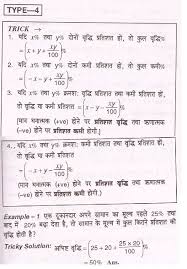 TYPE—4
TRICK →
1. यदि x% तथा y% दोनों वृद्धि प्रतिशत हो, तो कुल वृद्धि%
= (x + y + xy/100)%
2. यदि x% तथा y% दोनों कमी प्रतिशत हो, तो कुल कमी%
= (x + y − xy/100)%
3. यदि x% तथा y% क्रमशः वृद्धि प्रतिशत तथा कमी प्रतिशत हो,
तो वृद्धि या कमी प्रतिशत = (x − y − xy/100)%
[मान धनात्मक (+ve) होने पर प्रतिशत वृद्धि तथा ऋणात्मक
(−ve) होने पर प्रतिशत कमी होगी।]
4. यदि x% तथा y% क्रमशः कमी प्रतिशत तथा वृद्धि प्रतिशत हो,
तो वृद्धि या कमी प्रतिशत
= (−x + y − xy/100)%
[मान धनात्मक (+ve) होने पर प्रतिशत वृद्धि तथा ऋणात्मक
(−ve) होने पर प्रतिशत कमी होगी।]
Example – 1 एक दुकानदार अपने सामान का मूल्य पहले 25% तथा
बाद में 20% बढ़ा देता है, तो सामान के मूल्य में कुल कितने प्रतिशत की
वृद्धि होती है?
Tricky Solution: अभीष्ट वृद्धि% = (25 + 20 + 25 × 20/100)%
= 50% Ans.